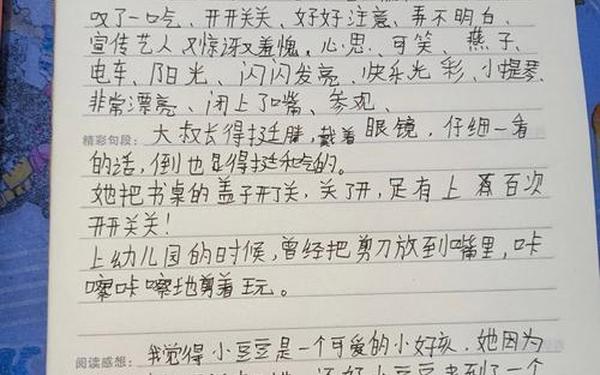 叹了一口气、开开关关、好好注意、弄不明白、
宣传艺人、又惊讶又羞愧、心思、可笑、燕子、
电车、阳光、闪闪发亮、快乐光彩、小提琴、
非常漂亮、闭上了嘴、参观、
精彩句段：大叔长得挺胖，戴着眼镜，仔细一看
的话，倒也显得挺和气的。
她把书桌的盖子开了关，关了开，足有上百次
开开关关！
上幼儿园的时候，曾经把剪刀放到嘴里，咔
嚓咔嚓地剪着玩。
阅读感想：我觉得小豆豆是一个可爱的小好孩，她因为